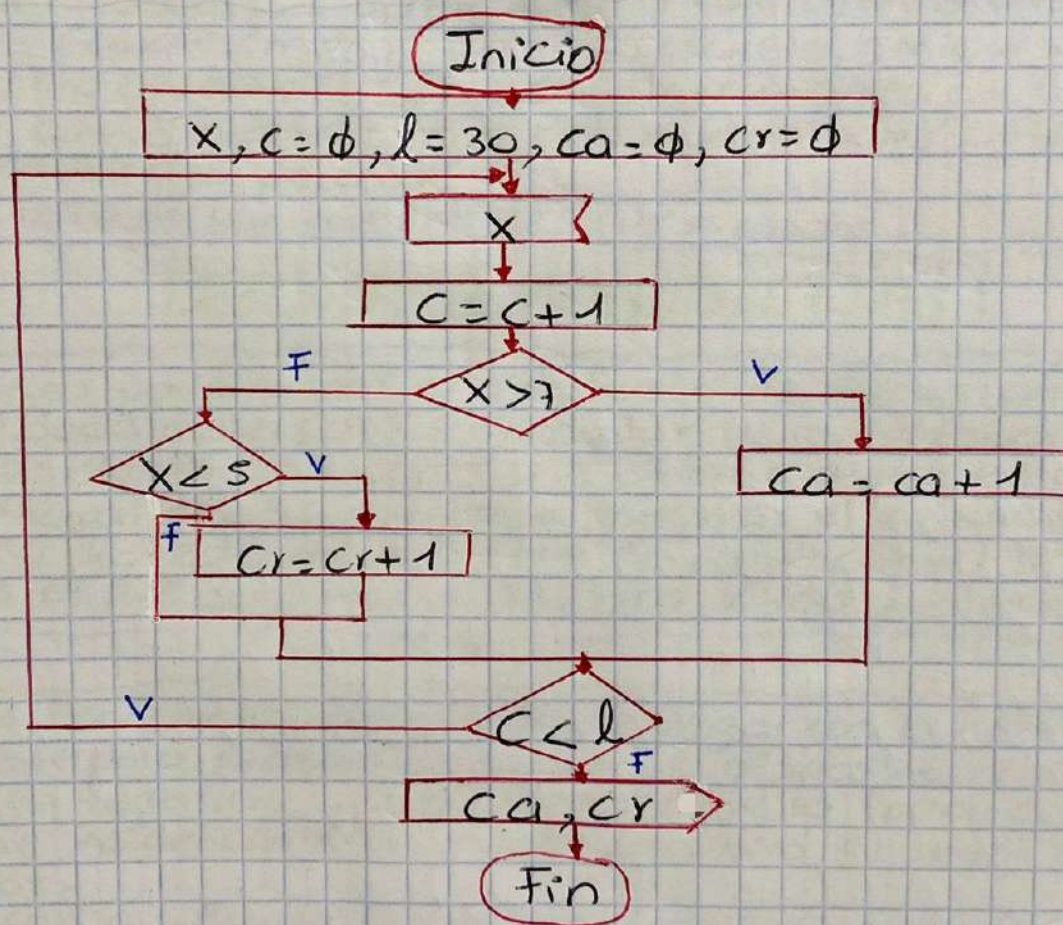 Inicio
X, C = ϕ, l = 30, ca = ϕ, cr = ϕ
X
C = C + 1
F
X > 7
V
X < 5
V
Ca = ca + 1
F
Cr = Cr + 1
V
C < l
F
Ca, cr
Fin